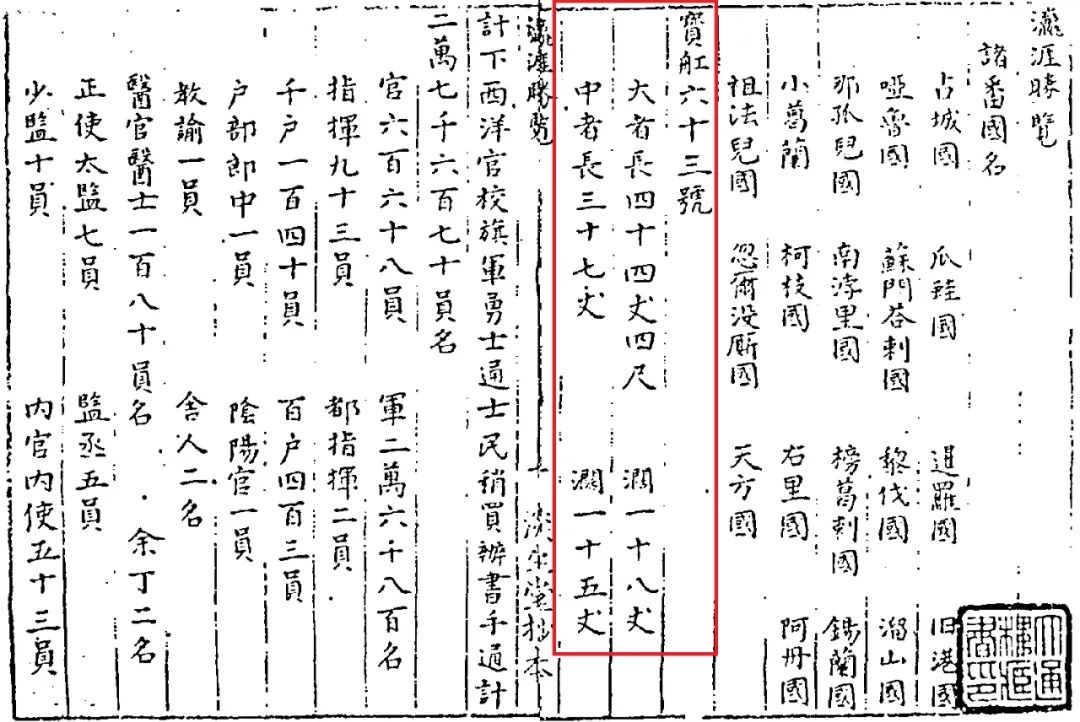 瀛涯勝覧
諸番國名
占城國 爪哇國 暹羅國 旧港國
啞魯國 蘇門荅剌國 黎伐國 溜山國
那孤兒國 南浡里國 榜葛剌國 錫蘭國
小葛蘭 柯枝國 古里國 阿丹國
祖法兒國 忽爾没厮國 天方國
寳舡六十三號
大者長四十四丈四尺 濶一十八丈
中者長三十七丈 濶一十五丈
瀛涯勝覧 淡生堂抄本
計下西洋官校旗軍勇士通士民稍買辦書手通計
二萬七千六百七十員名
官六百六十八員 軍二萬六千八百名
指揮九十三員 都指揮二員
千户一百四十員 百户四百三員
户部郎中一員 陰陽官一員
教諭一員 舍人二名
醫官醫士一百八十員名 余丁二名
正使太監七員 監丞五員
少監十員 内官内使五十三員